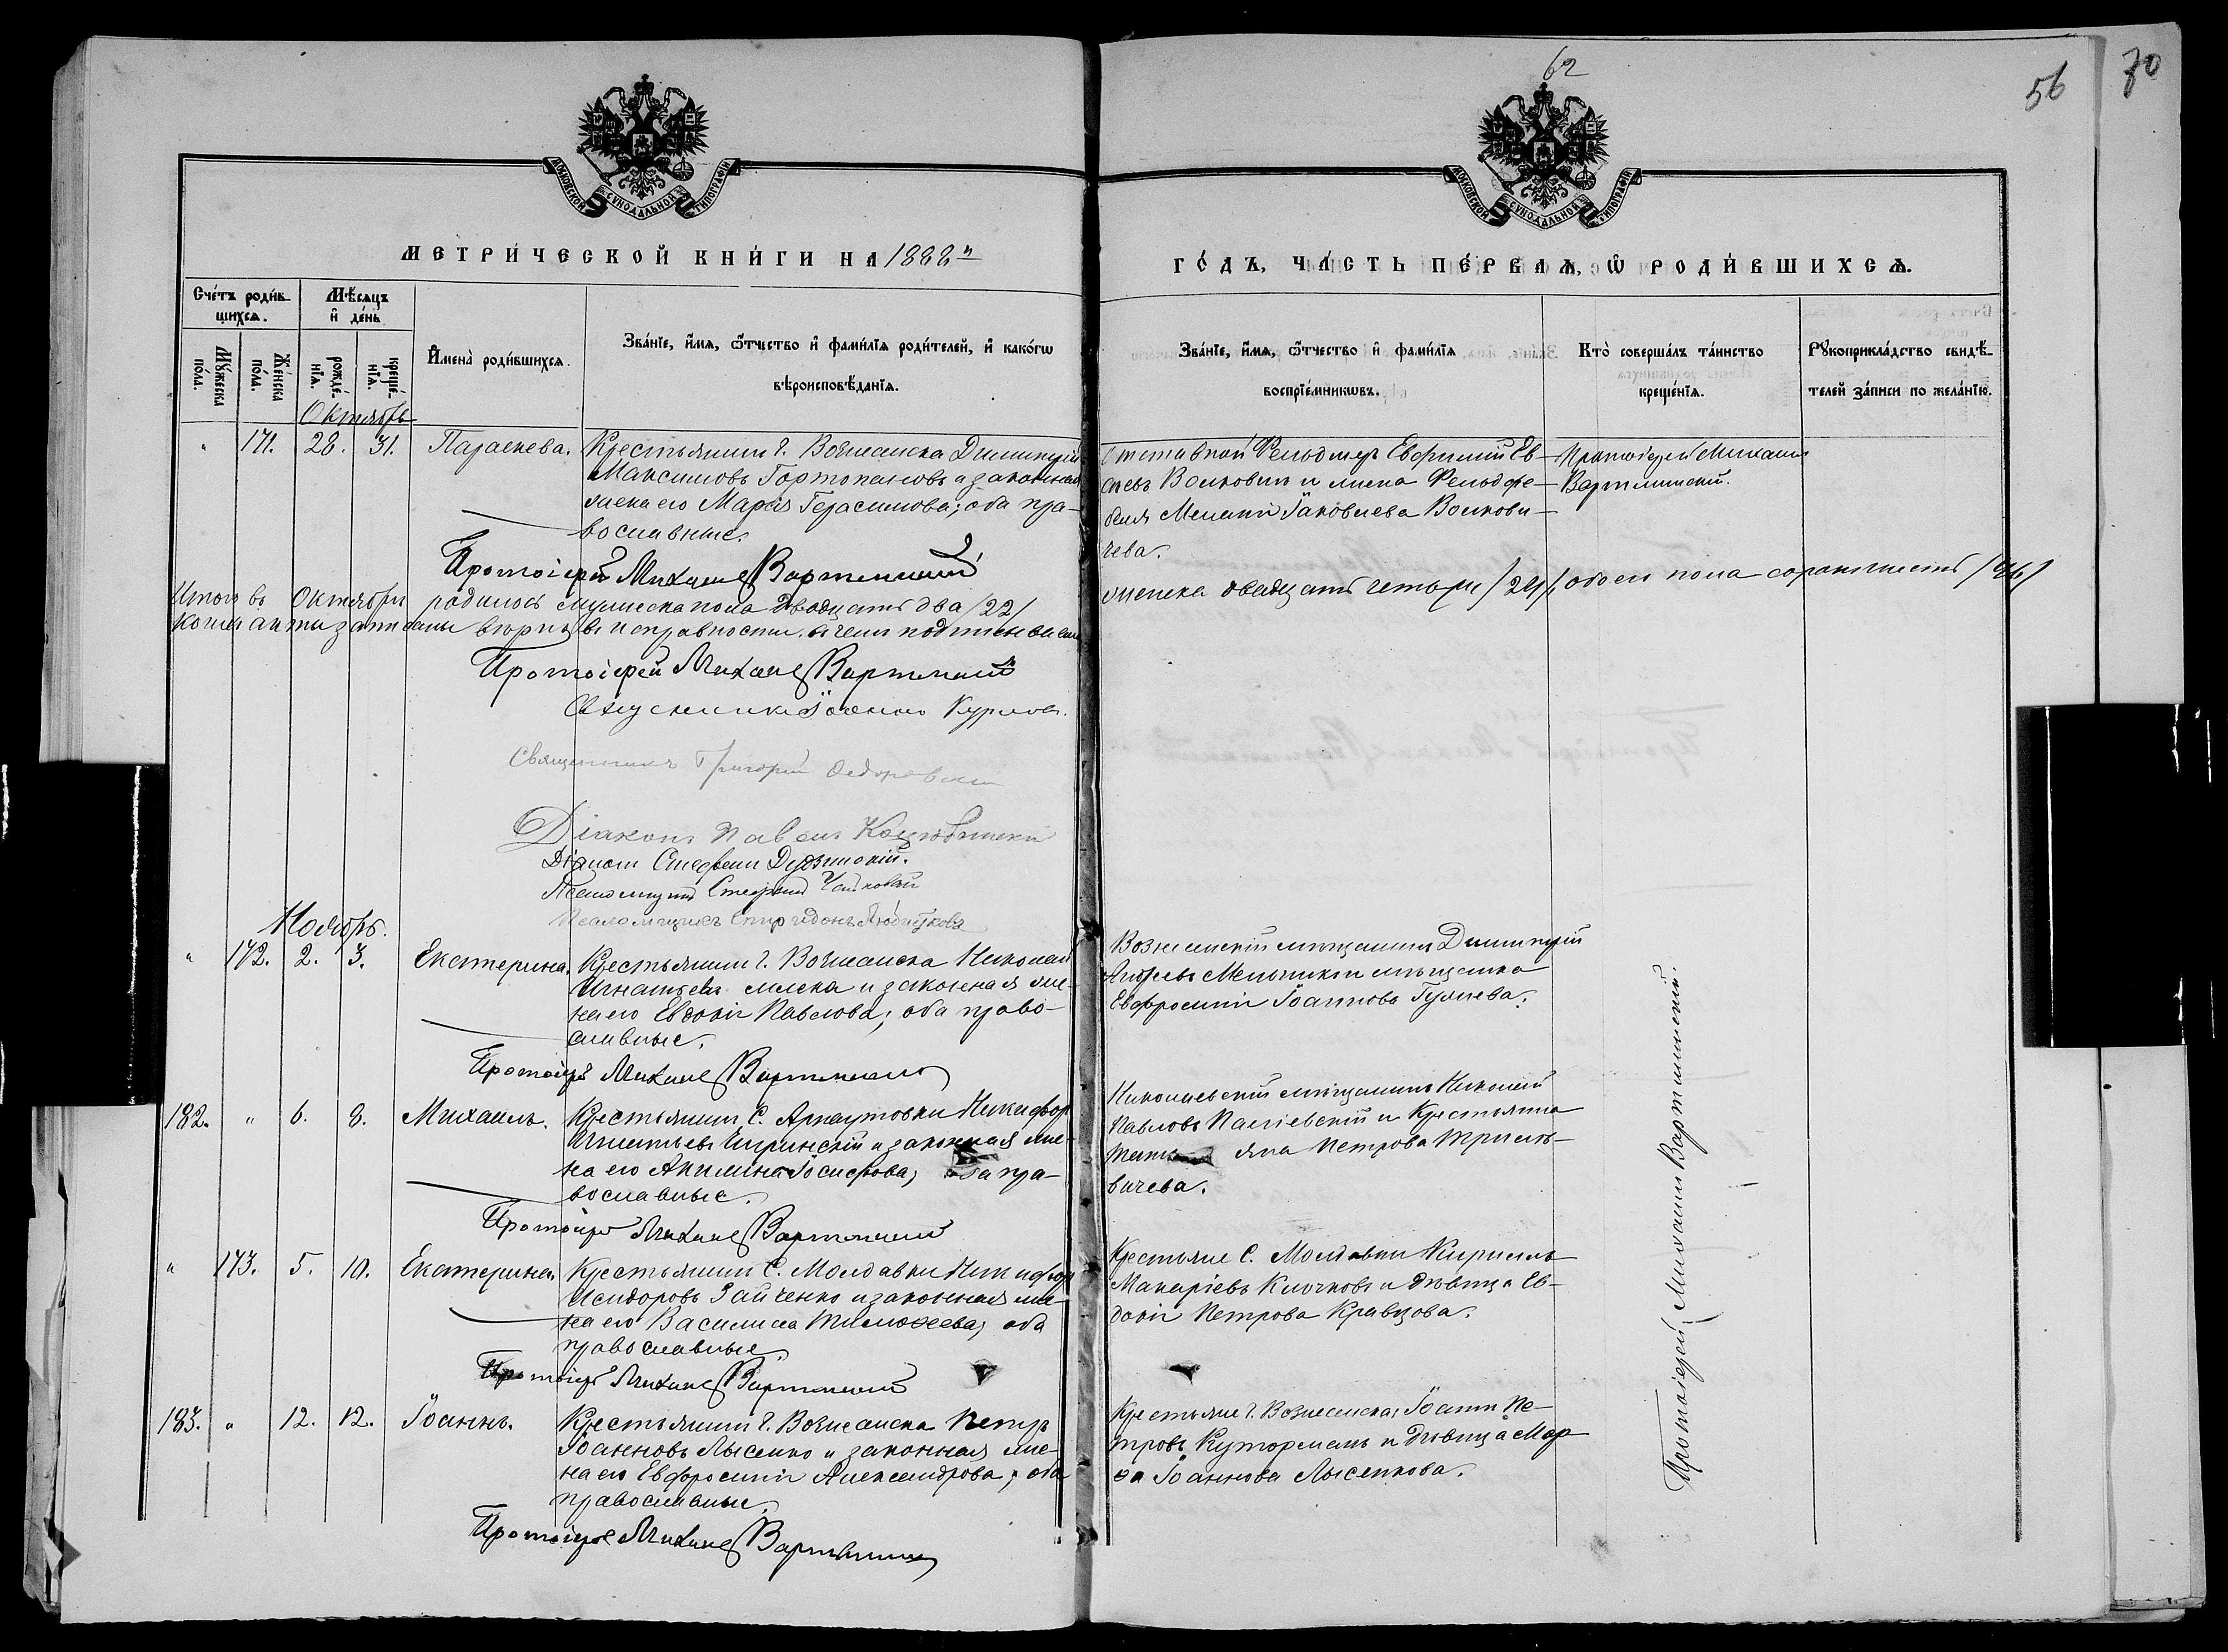 62
56
70
МОСКОВСКОЙ СѴНОДАЛЬНОЙ ТИПОГРАФІИ
МОСКОВСКОЙ СѴНОДАЛЬНОЙ ТИПОГРАФІИ
МЕТРИ́ЧЕСКОЙ КНИ́ГИ НА 1888й
ГО́ДЪ, ЧА́СТЬ ПЕ́РВАѦ, Ѡ҆ РОДИ́ВШИХСѦ.
Сче́тъ роди́в-
шихсѧ.
Мѣ́сѧцъ
и҆ де́нь
Мꙋ́жеска по́ла.
Же́нска по́ла.
рожде́-
нїѧ.
креще́-
нїѧ.
И҆мена̀ роди́вшихсѧ.
Зва́нїе, и҆́мѧ, ѻ҆́тчество и҆ фами́лїѧ роди́телей, и҆ како́гѡ
вѣроисповѣ́данїѧ.
Зва́нїе, и҆́мѧ, ѻ҆́тчество и҆ фами́лїѧ
воспрїе́мникѡвъ.
Кто̀ соверша́лъ та́инство
креще́нїѧ.
Рꙋкоприкла́дство свидѣ́-
телей за́писи по жела́нїю.
Октябрь
" 171. 28. 31. Параскева. Крестьянинъ г. Вознесенска Димитрій
Максимовъ и законная
жена его Марія Герасимова; оба пра-
вославные.
Протоіерей Михаилъ Вартминскій
Отставной Фельдшеръ Евфимій Ев-
Волковичъ и жена Фельдфе-
беля Іаковлева Волкови-
чева.
Протоіерей Михаилъ
Вартминскій.
Итого въ Октябрѣ родилось мужеска пола двадцать два /22/
женска двадцать четыре /24/, обоего пола сорокъ шесть /46/
записаны въ исправности, въ чемъ подписываемся
Протоіерей Михаилъ Вартминскій
Священникъ Іоаннъ
Священникъ Григорій Федоровскій
Діаконъ Павелъ
Діаконъ Стефанъ
Псаломщикъ Чайковскій
Псаломщикъ Спиридонъ
Ноябрь.
" 172. 2. 3. Екатерина. Крестьянинъ г. Вознесенска Николай
Игнатьевъ и законная же-
на его Евдокія Павлова; оба право-
славные.
Протоіерей Михаилъ Вартминскій
Вознесенскій мѣщанинъ Димитрій
Андреевъ Мельникъ и мѣщанка
Евфросинія Іоаннова
182. " 6. 8. Михаилъ. Крестьянинъ С. Арнаутовки Никифоръ
Игнатьевъ и законная же-
на его Акилина Іосифова; оба пра-
вославные.
Протоіерей Михаилъ Вартминскій
Николаевскій мѣщанинъ Николай
Павловъ и Крестьянка
Петрова
вичева.
" 173. 5. 10. Екатерина. Крестьянинъ С. Молдавки Никифоръ
Исидоровъ Зайченко и законная же-
на его Василиса Тимоѳеева; оба
православные.
Протоіерей Михаилъ Вартминскій
Крестьяне С. Молдавки Кириллъ
Макаріевъ Клочковъ и дѣвица Ев-
докія Петрова Кравцова.
183. " 12. 12. Іоаннъ. Крестьянинъ г. Вознесенска Петръ
Іоанновъ Лысенко и законная же-
на его Евфросинія Александрова; оба
православные.
Протоіерей Михаилъ Вартминскій
Крестьяне г. Вознесенска, Іоаннъ Пе-
тровъ и дѣвица Мар-
ѳа Іоаннова Лысенкова.
Протоіерей Михаилъ Вартминскій.